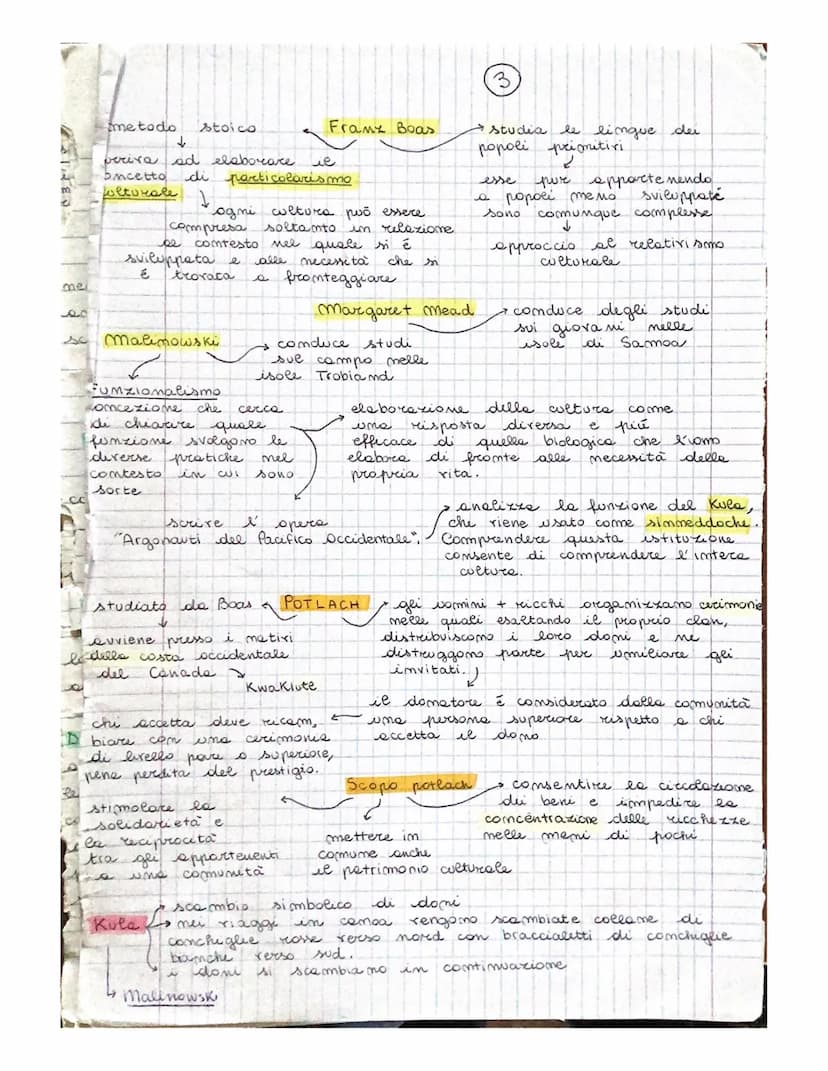 3
metodo stoico
Franz Boas
studia le lingue dei
popoli primitivi
arriva ad elaborare il
concetto di particolarismo
culturale
esse pur appartenendo
a popoli meno sviluppati
sono comunque complesse
ogni cultura può essere
compresa soltanto in relazione
al contesto nel quale si è
sviluppata e alle necessità che si
è trovata a fronteggiare
approccio al relativismo
culturale
Margaret Mead
conduce degli studi
sui giovani nelle
isole di Samoa
Malinowski
conduce studi
sul campo nelle
isole Trobiand
Funzionalismo
concezione che cerca
di chiarire quale
funzione svolgono le
diverse pratiche nel
contesto in cui sono
sorte
elaborazione della cultura come
una risposta diversa e più
efficace di quella biologica che l'uomo
elabora di fronte alle necessità della
propria vita.
scrive l'opera
"Argonauti del Pacifico Occidentale".
analizza la funzione del Kula,
che viene usato come sinneddoche.
Comprendere questa istituzione
consente di comprendere l'intera
cultura.
studiato da Boas
POTLACH
gli uomini + ricchi organizzano cerimonie
nelle quali esaltando il proprio clan,
distribuiscono i loro doni e ne
distruggono parte per umiliare gli
invitati.
avviene presso i nativi
della costa occidentale
del Canada
KwaKlute
il donatore è considerato dalla comunità
una persona superiore rispetto a chi
accetta il dono
chi accetta deve ricam,
biare con una cerimonia
di livello pare o superiore,
pena perdita del prestigio.
Scopo potlach
consentire la circolazione
dei beni e impedire la
concentrazione delle ricchezze
nelle mani di pochi
stimolare la
solidarietà e
la reciprocità
tra gli appartenenti
a una comunità
mettere in
comune anche
il patrimonio culturale
Kula
scambio simbolico di doni
nei viaggi in canoa vengono scambiate collane di
conchiglie rosse verso nord con braccialetti di conchiglie
bianche verso sud.
i doni si scambiano in continuazione
Malinowski